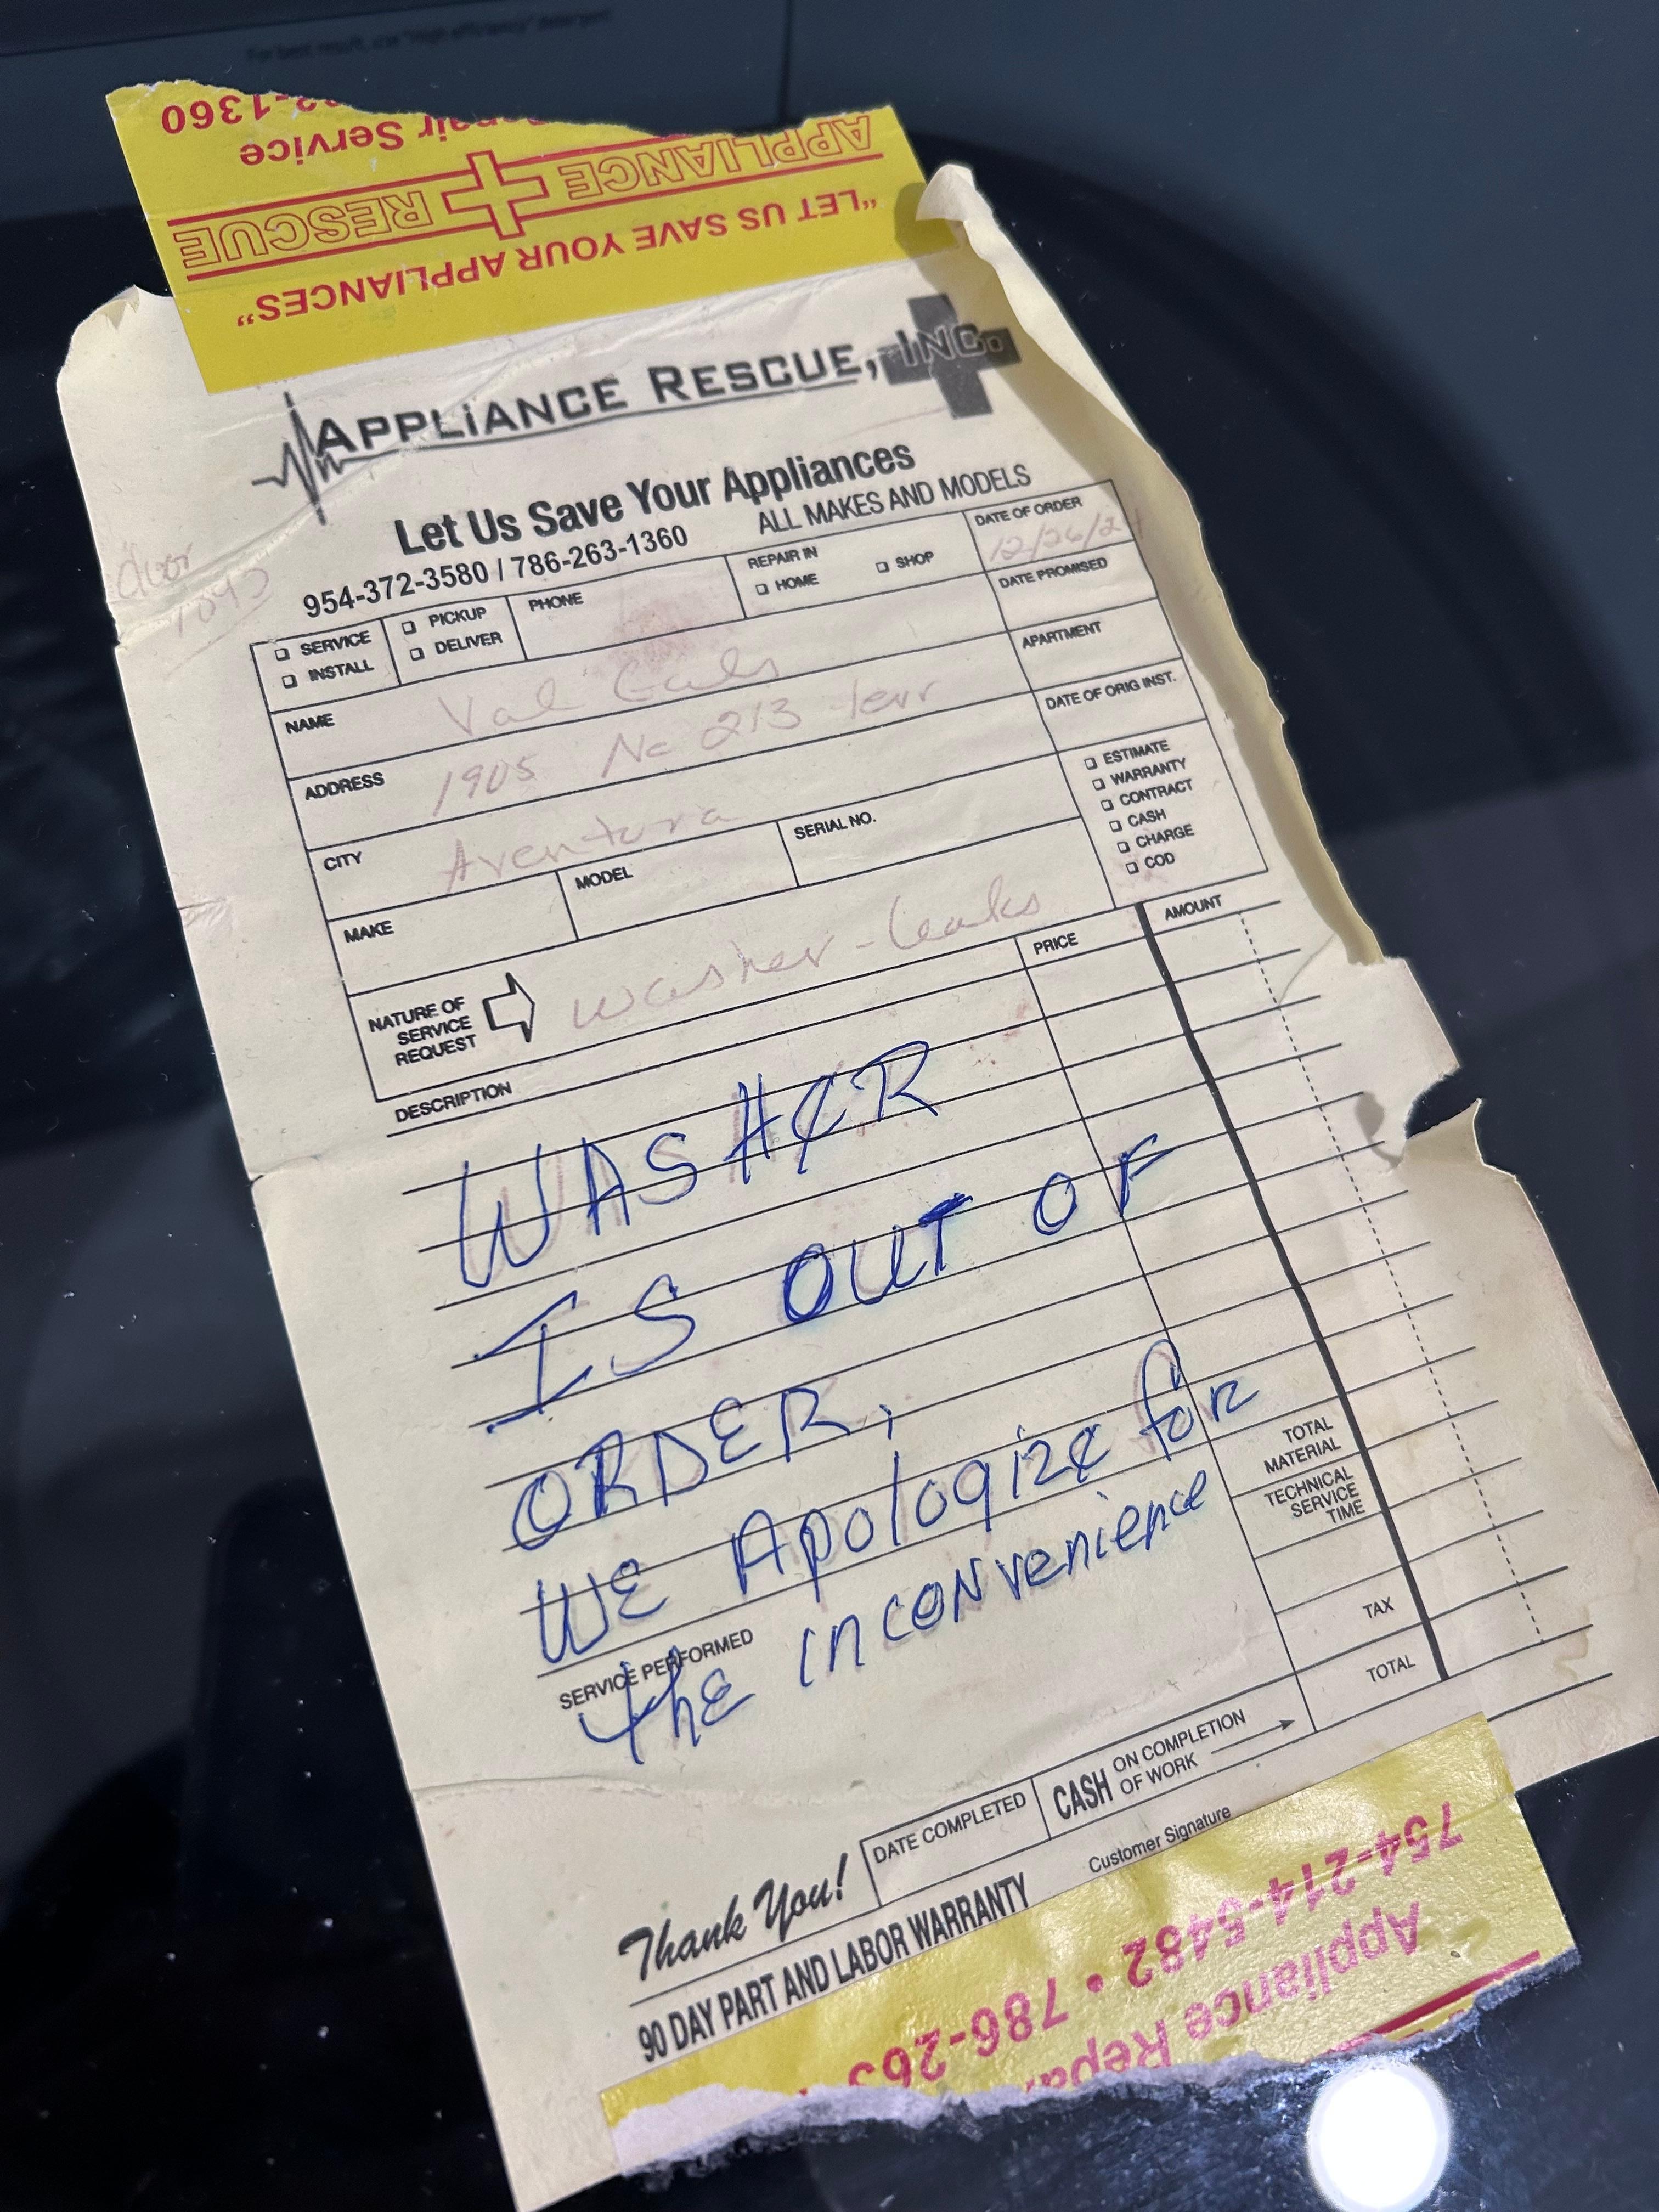 For best result, use "High efficiency" detergent
"LET US SAVE YOUR APPLIANCES"
APPLIANCE RESCUE
Repair Service
-1360
APPLIANCE RESCUE, INC.
Let Us Save Your Appliances
954-372-3580 / 786-263-1360 ALL MAKES AND MODELS
door
SERVICE
INSTALL
PICKUP
DELIVER
PHONE
REPAIR IN
HOME SHOP
DATE OF ORDER
12/26/24
DATE PROMISED
NAME Val
APARTMENT
ADDRESS 1905 Ne 213 terr
DATE OF ORIG INST.
CITY Aventura
MAKE
MODEL
SERIAL NO.
ESTIMATE
WARRANTY
CONTRACT
CASH
CHARGE
COD
NATURE OF
SERVICE
REQUEST
washer - leaks
DESCRIPTION
PRICE
AMOUNT
WASHER
IS OUT OF
ORDER,
WE Apologize for
the inconvenience
TOTAL
MATERIAL
TECHNICAL
SERVICE
TIME
TAX
TOTAL
SERVICE PERFORMED
Thank You!
DATE COMPLETED
CASH ON COMPLETION
OF WORK
90 DAY PART AND LABOR WARRANTY
Customer Signature
Appliance Repa
754-214-5482 • 786-263